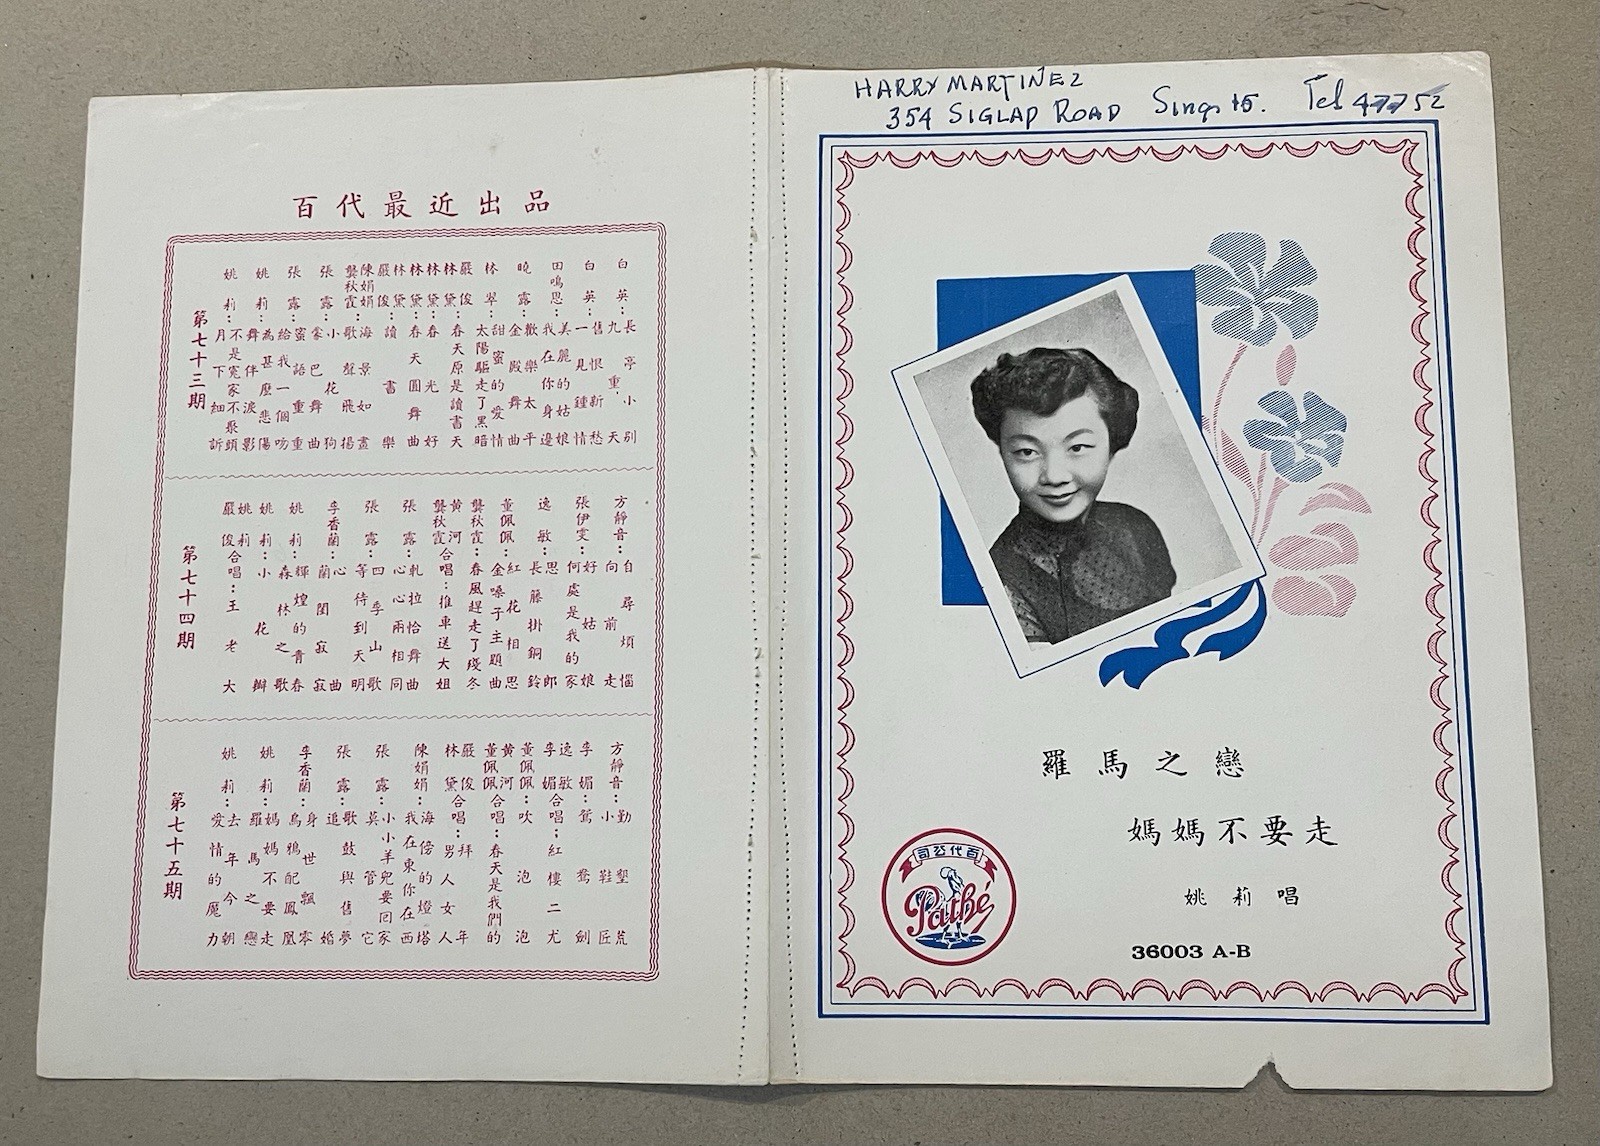 百代最近出品
第七十三期
白英：長亭小別
九重天
白英：售恨新愁
一見鍾情
田鳴恩：美麗的姑娘
我在你身邊
曉露：歡樂太平
金殿舞曲
林翠：甜蜜的愛情
太陽驅走了黑暗
嚴俊
林黛：春天原是讀書天
林黛：春光好
林黛：春天圓舞曲
林黛
嚴俊：讀書樂
陳娟娟
龔秋霞：海景如畫
歌聲飛揚
張露：小花狗
蒙巴舞曲
張露：蜜語重重
給我一個吻
姚莉：為甚麼悲傷
舞伴淚影
姚莉：不是冤家不聚頭
月下細訴
第七十四期
方靜音：自尋煩惱
向前走
張伊雯：好姑娘
何處是我的家
逸敏：思郎
長藤掛銅鈴
董佩佩：紅花相思
金嗓子主題曲
龔秋霞：春風趕走了殘冬
黃河
龔秋霞合唱：推車送大姐
張露：軋拉恰舞曲
心心兩相同
張露：四季山歌
等待到天明
李香蘭：心曲
蘭閨寂寂
姚莉：輝煌的青春
森林之歌
姚莉：小花辮
姚莉
嚴俊合唱：王老大
第七十五期
方靜音：勤墾荒
小鞋匠
李媚：鴛鴦劍
逸敏
李媚合唱：紅樓二尤
董佩佩：吹泡泡
黃河
董佩佩合唱：春天是我們的
嚴俊
林黛合唱：拜年
男人女人
陳娟娟：海傍的燈塔
我在東你在西
張露：小小羊兒要回家
莫管它
張露：歌鼓與售夢
追婚
李香蘭：身世飄零
烏鴉配鳳凰
姚莉：媽媽不要走
羅馬之戀
姚莉：去年今朝
愛情的魔力
HARRY MARTINEZ
354 SIGLAP ROAD Sing. 15. Tel 47752
羅馬之戀
媽媽不要走
姚莉唱
36003 A-B
司公代百
Pathé